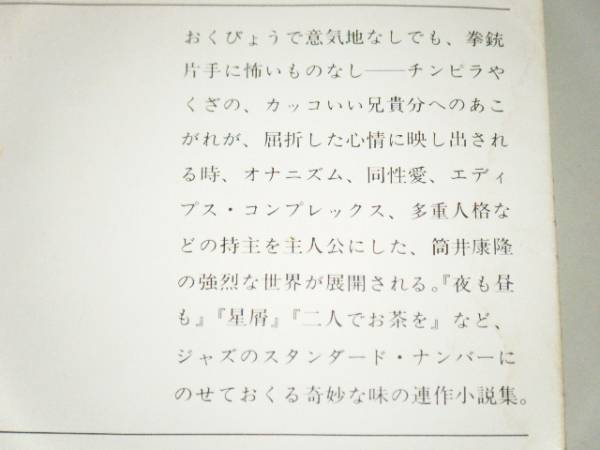 おくびょうで意気地なしでも、拳銃
片手に怖いものなし――チンピラや
くざの、カッコいい兄貴分へのあこ
がれが、屈折した心情に映し出され
る時、オナニズム、同性愛、エディ
プス・コンプレックス、多重人格な
どの持主を主人公にした、筒井康隆
の強烈な世界が展開される。『夜も昼
も』『星屑』『二人でお茶を』など、
ジャズのスタンダード・ナンバーに
のせておくる奇妙な味の連作小説集。